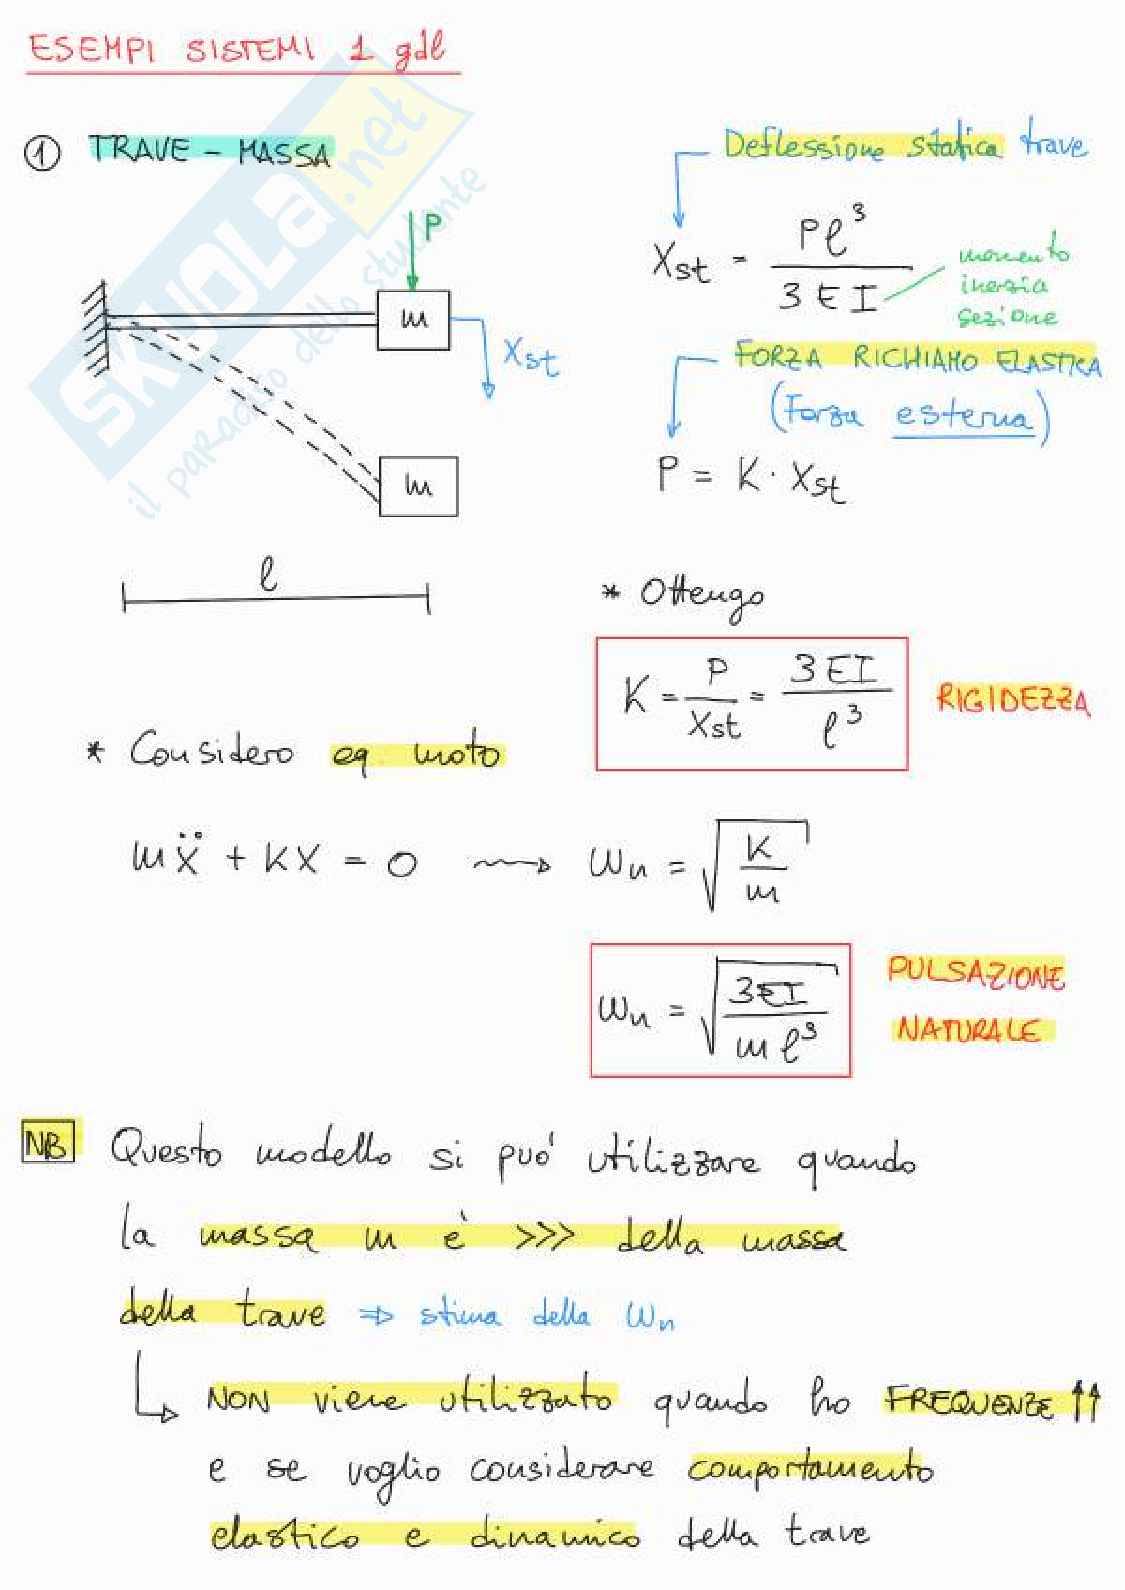 ESEMPI SISTEMI 1 gdl
① TRAVE - MASSA
Deflessione statica trave
P
m
Xst
m
l
Xst = Pl³ / 3EI
momento
inerzia
sezione
FORZA RICHIAMO ELASTICA
(Forza esterna)
P = K · Xst
* Ottengo
K = P/Xst = 3EI/l³
RIGIDEZZA
* Considero eq. moto
mẍ + Kx = 0 ⇝ ωn = √(K/m)
ωn = √(3EI/ml³)
PULSAZIONE
NATURALE
NB Questo modello si può utilizzare quando
la massa m è >>> della massa
della trave ⇒ stima della ωn
↳ NON viene utilizzato quando ho FREQUENZE ↑↑
e se voglio considerare comportamento
elastico e dinamico della trave
SKUOLA.net
il paradiso dello studente